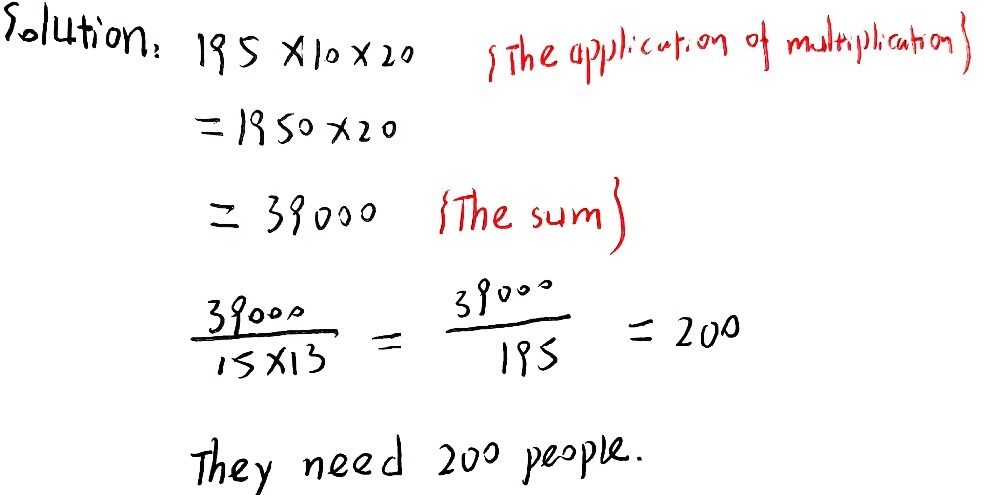 Solution: 195 × 10 × 20 {The application of multiplication}
= 1950 × 20
= 39000 {The sum}
39000 / 15 × 13 = 39000 / 195 = 200
They need 200 people.